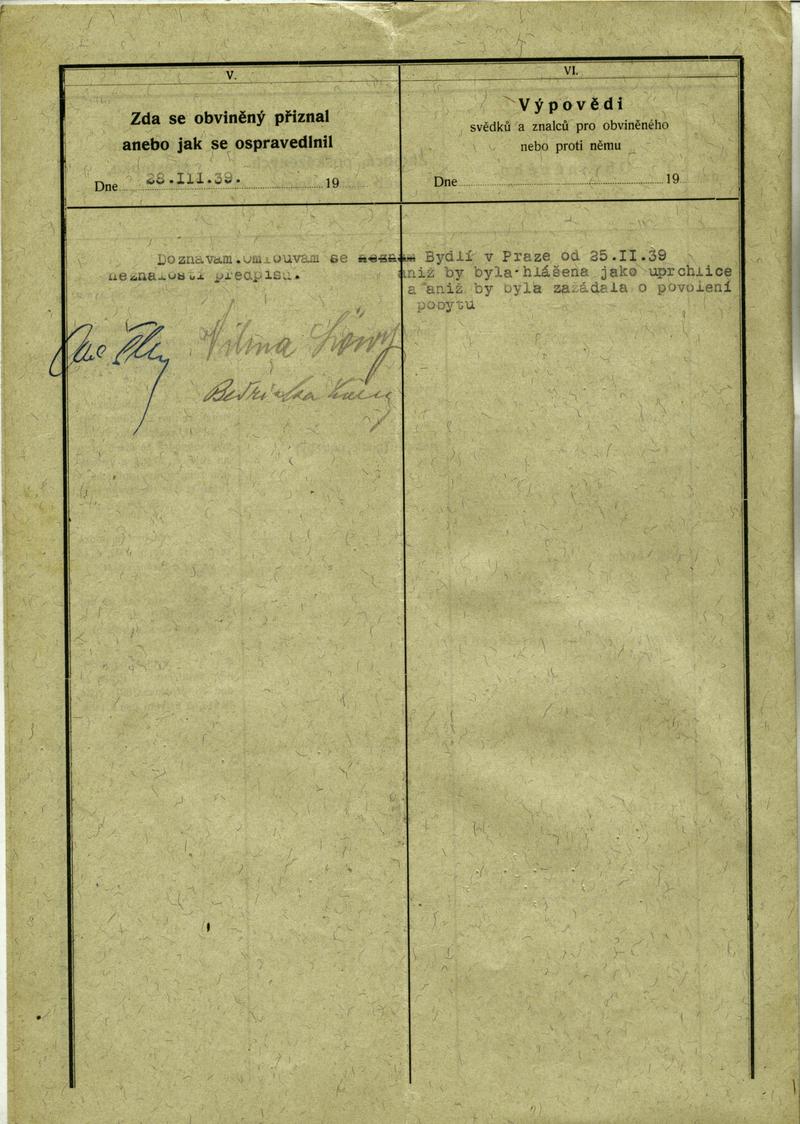 V.
Zda se obviněný přiznal
anebo jak se ospravedlnil
Dne 28.III.39. 19
Doznávám.omlouvám se
neznalostí předpisů.
Vilma Löwy
VI.
Výpovědi
svědků a znalců pro obviněného
nebo proti němu
Dne 19
Bydlí v Praze od 25.II.39
aniž by byla hlášena jako uprchlice
a aniž by byla zažádala o povolení
pobytu